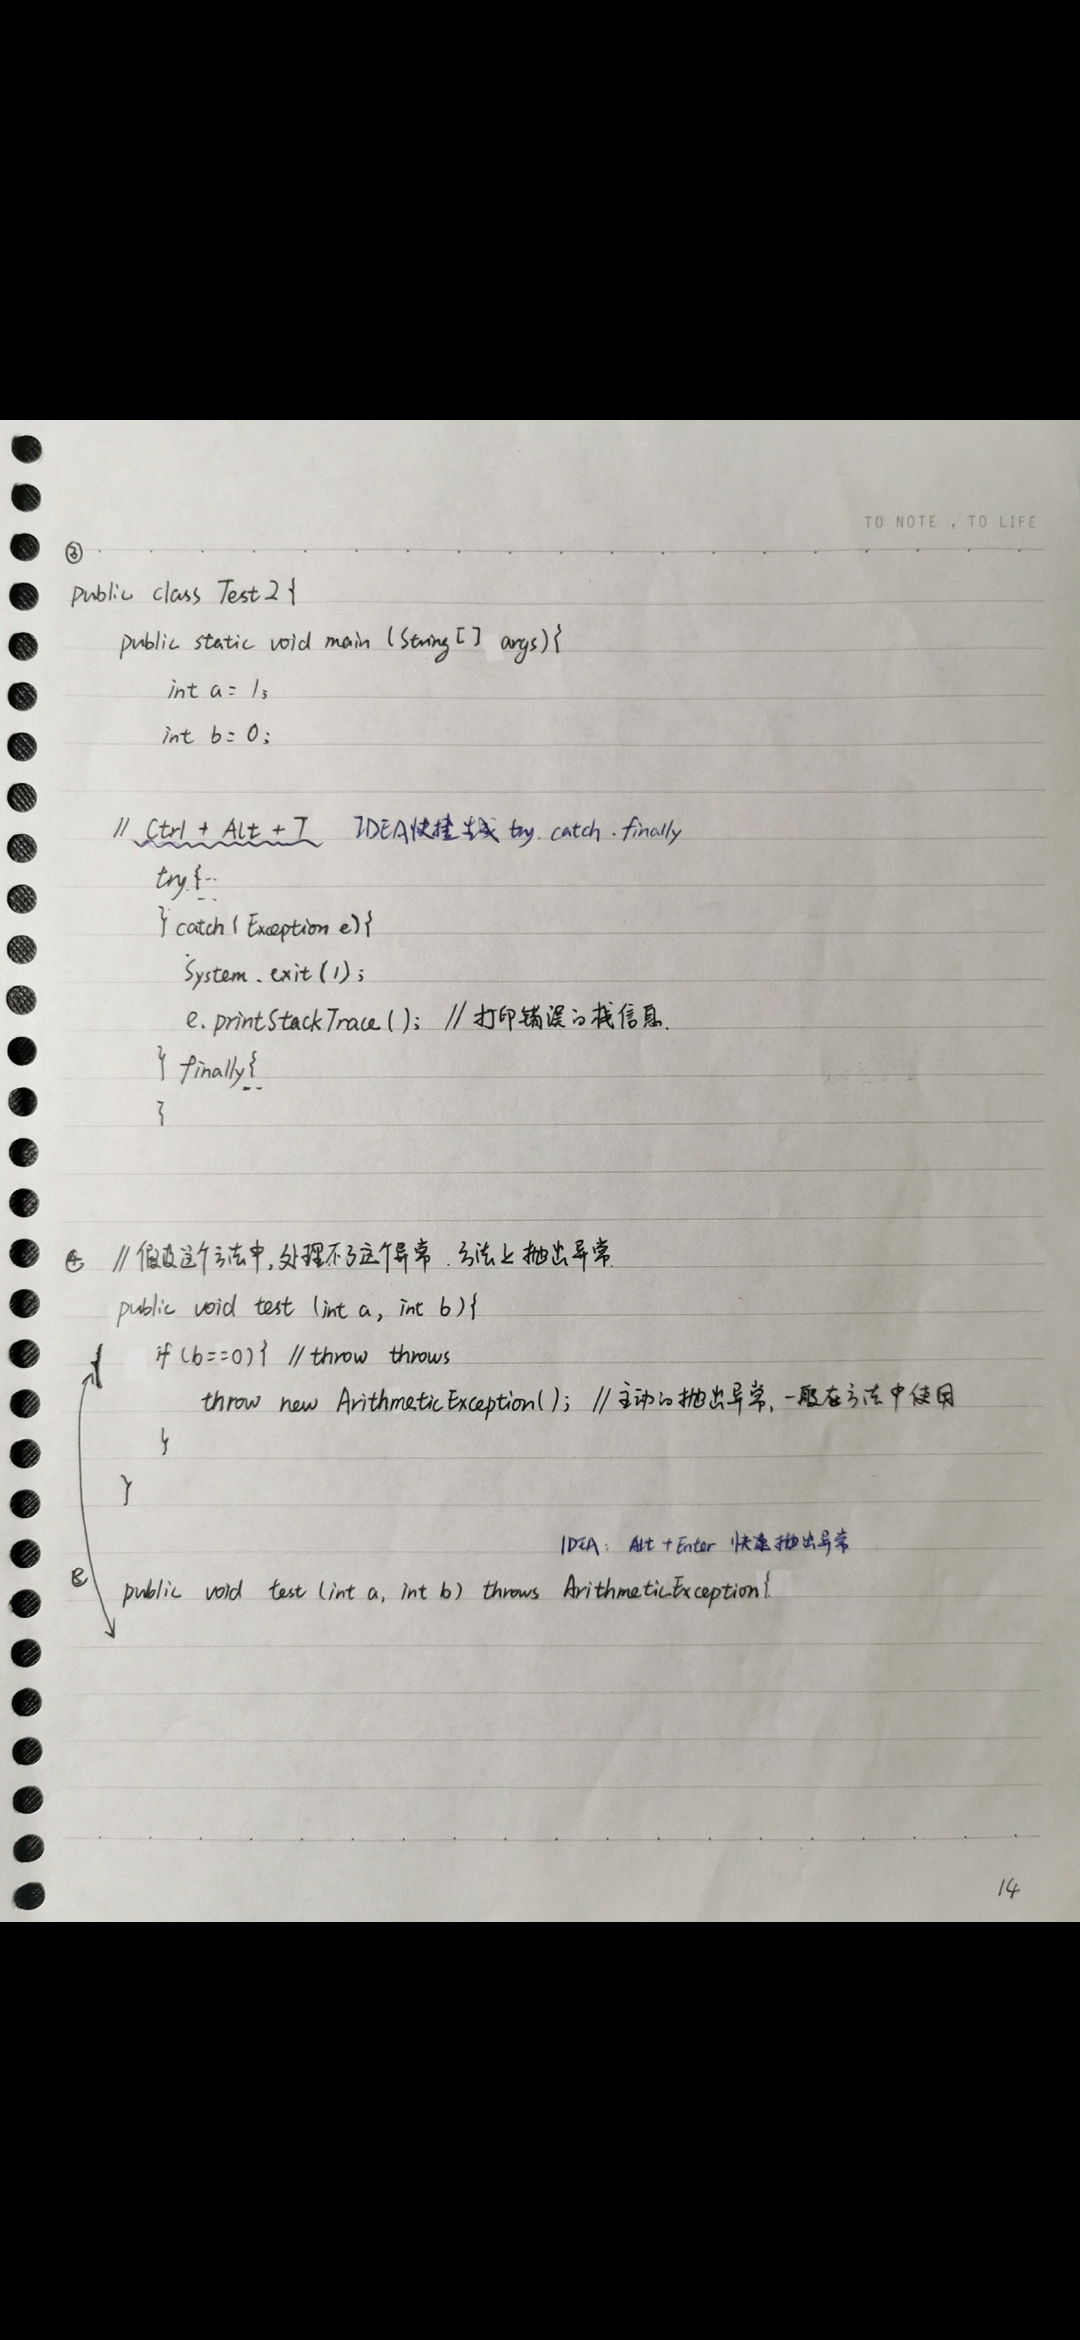 TO NOTE , TO LIFE
③
public class Test2{
public static void main (String[] args){
int a = 1;
int b = 0;
// Ctrl + Alt + T IDEA快捷生成 try. catch. finally
try{...
} catch (Exception e){
System.exit(1);
e.printStackTrace(); // 打印错误的栈信息.
} finally{
}
④ // 假设这个方法中,处理不了这个异常.方法上抛出异常.
public void test (int a, int b){
if (b==0){ // throw throws
throw new ArithmeticException(); // 主动的抛出异常,一般在方法中使用
}
}
IDEA: Alt + Enter 快速抛出异常
public void test (int a, int b) throws ArithmeticException{
14